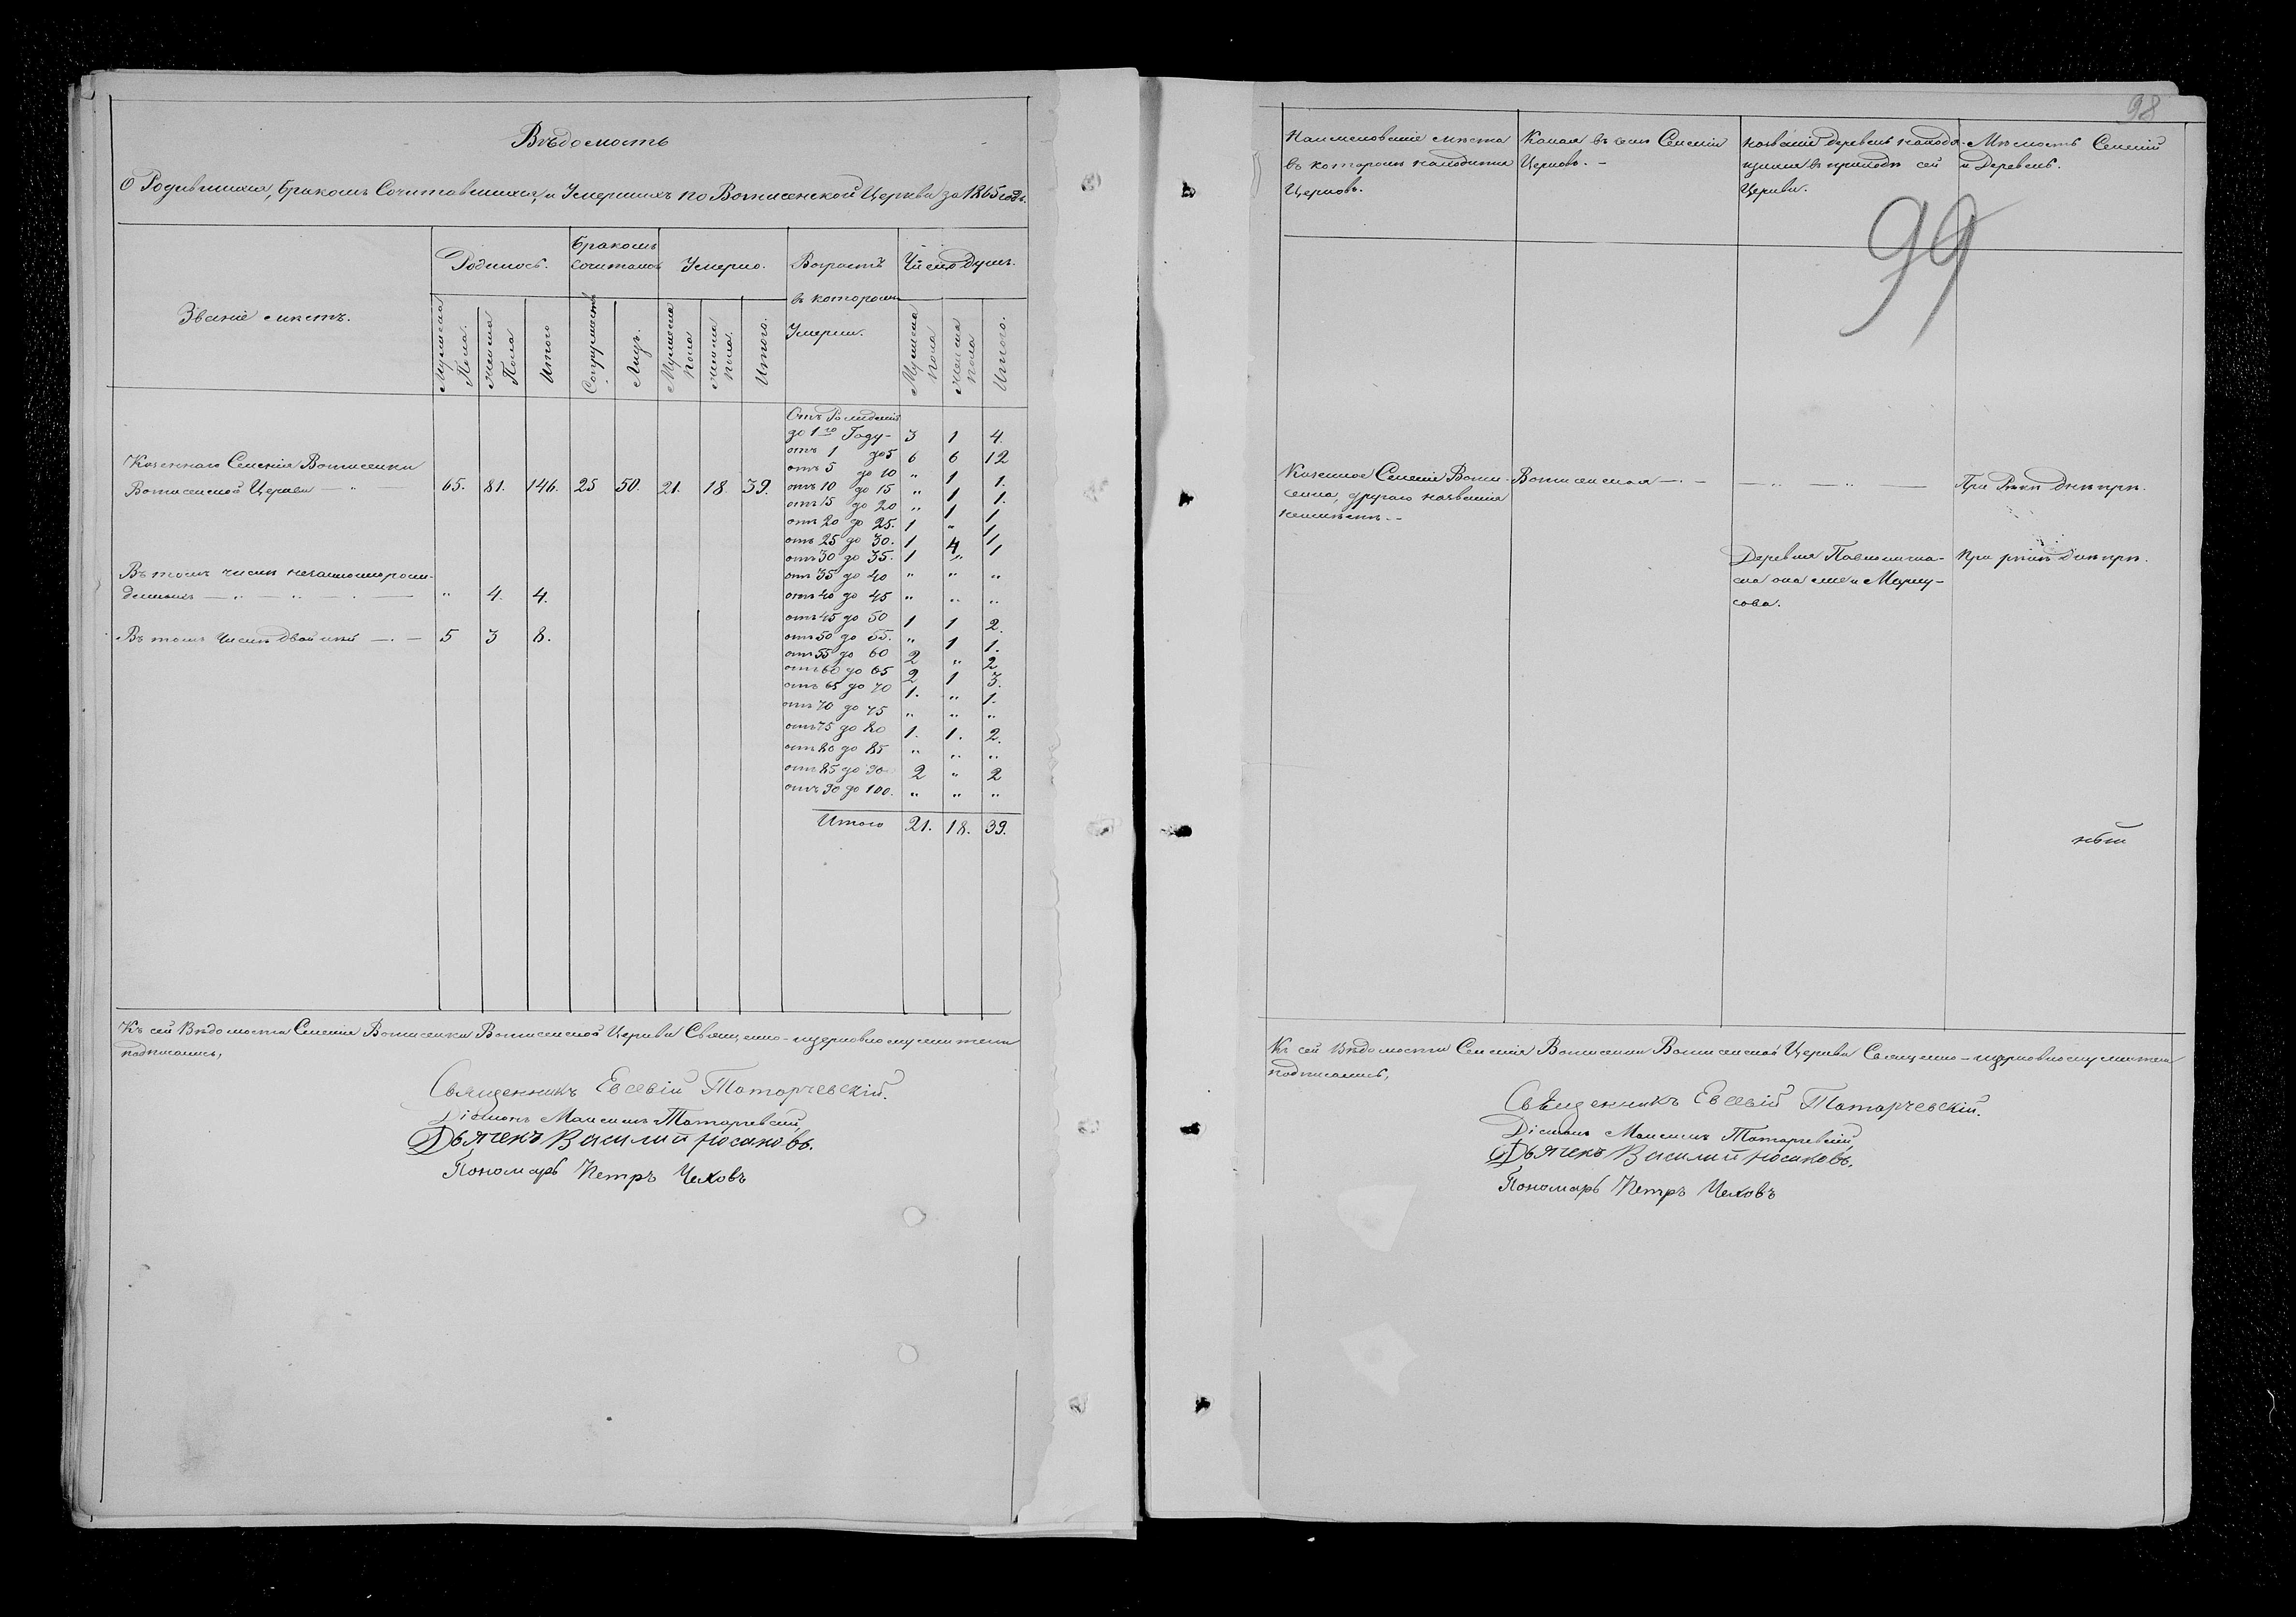 Вѣдомость
О Родившихся, бракомъ Сочитавшихся, и Умершихъ по Вознесенской Церкви за 1865 годъ.
Званіе мѣстъ.
Родилось.
бракомъ
сочиталось
Умерло.
Возрастъ
въ которомъ
Умерли.
Число душъ.
Мужеска Пола.
женска Пола
Итого
Супружествъ
Лицъ.
Мужеска пола
женска пола.
Итого.
Мужеска пола
женска пола
Итого.
Казеннаго Селенія
Церкви 65. 81. 146. 25 50. 21. 18 39.
Въ томъ числѣ незаконнорож-
денныхъ „ 4. 4.
Въ томъ числѣ двойней 5 3 8.
Отъ Рожденія
до 1го Году- 3 1 4.
отъ 1 до 5 6 6 12
отъ 5 до 10 „ 1 1.
отъ 10 до 15 „ 1 1.
отъ 15 до 20 „ 1 1
отъ 20 до 25. 1 „ 1
отъ 25 до 30. 1 4
отъ 30 до 35. 1 „ 1
отъ 35 до 40 „ „ „
отъ 40 до 45 „ „ „
отъ 45 до 50 1 1 2.
отъ 50 до 55. „ 1 1.
отъ 55 до 60 2 „ 2
отъ 60 до 65 2 1 3.
отъ 65 до 70 1. „ 1.
отъ 70 до 75 „ „ „
отъ 75 до 80 1. 1. 2.
отъ 80 до 85 „ „ „
отъ 85 до 90 2 „ 2
отъ 90 до 100. „ „ „
Итого 21. 18. 39.
Къ сей Вѣдомости Селенія Церкви Священно-церковнослужители
подписались,
Священникъ Евсевій Татарчевскій.
Діаконъ Максимъ Татарчевскій,
Дьячекъ Василий Носаковъ.
Пономарь Петръ Чеховъ
98
99
Наименованіе мѣста
въ которомъ находится
Церковь.
Какая въ семъ Селеніи
Церковь. -
названіе деревень находя-
щихся въ приходѣ сей
Церкви.
Мѣстность Селеній
и Деревень.
Казенное Селеніе
другаго названія
При Рѣкѣ Днѣпрѣ.
Деревня
она же и
При рѣкѣ Днѣпрѣ.
ный
Къ сей Вѣдомости Селенія Церкви Священно-церковнослужители
подписались,
Священникъ Евсевій Татарчевскій.
Діаконъ Максимъ Татарчевскій,
Дьячекъ Василий Носаковъ.
Пономарь Петръ Чеховъ